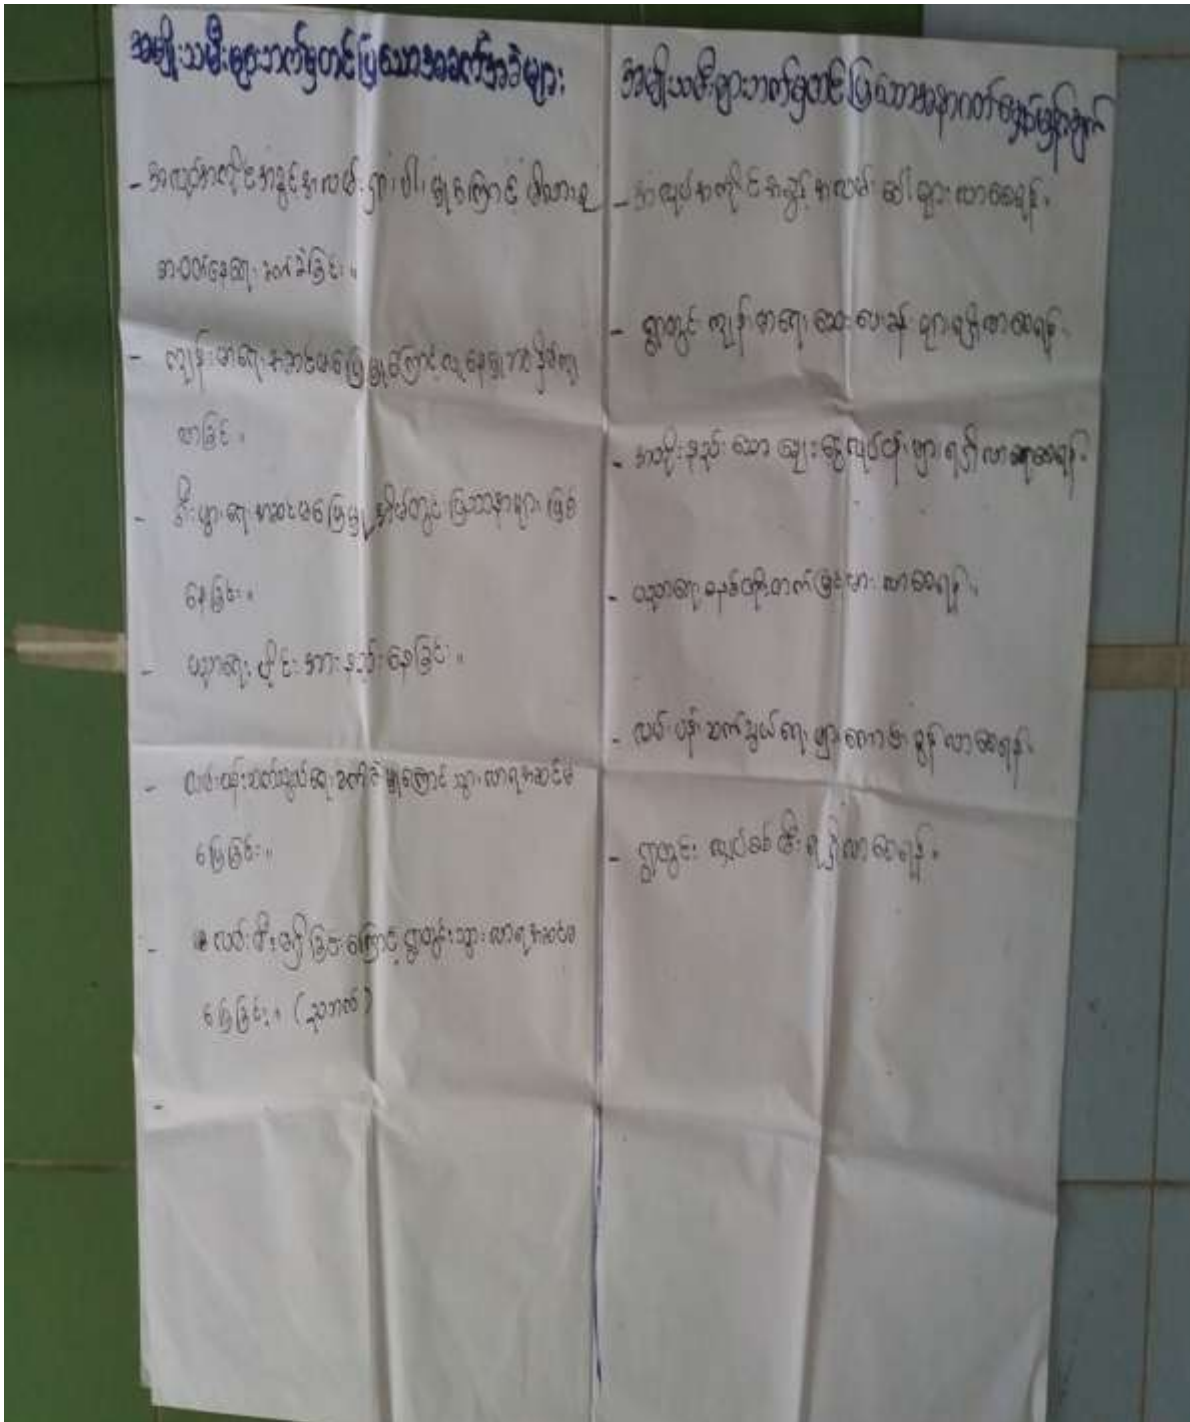 အမျိုးသမီးများဘက်မှတင်ပြသောအခက်အခဲများ
- အလုပ်အကိုင်အခွင့်အလမ်းရှားပါးမှုကြောင့် မိသားစု
စားဝတ်နေရေး ခက်ခဲခြင်း။
- ကျန်းမာရေး အဆင်မပြေမှုကြောင့် လူနေမှုဘဝနိမ့်ကျ
လာခြင်း။
- စီးပွားရေး အဆင်မပြေမှု အိမ်တွင်းပြဿနာများ ဖြစ်
နေခြင်း။
- ပညာရေးပိုင်း အားနည်းနေခြင်း။
- လမ်းပန်းဆက်သွယ်ရေး ခက်ခဲမှုကြောင့် သွားလာရ အဆင်မ
ပြေခြင်း။
- လမ်းမီးမရှိခြင်းကြောင့် ရွာတွင်းသွားလာရ အဆင်မ
ပြေခြင်း။ (ညဘက်)
-
အမျိုးသမီးများဘက်မှတင်ပြသောအနာဂတ်မျှော်မှန်းချက်
- အလုပ်အကိုင်အခွင့်အလမ်း ပေါများလာစေရန်။
- ရွာတွင် ကျန်းမာရေး ဆေးပေးခန်း များရရှိလာစေရန်။
- အတိုးနည်းသော ချေးငွေလုပ်ငန်းများ ရရှိလာစေရန်။
- ပညာရေးစနစ်တိုးတက်မြင့်မားလာစေရန်။
- လမ်းပန်းဆက်သွယ်ရေး များကောင်းမွန်လာစေရန်။
- ရွာတွင်း လျှပ်စစ်မီးရရှိလာစေရန်။